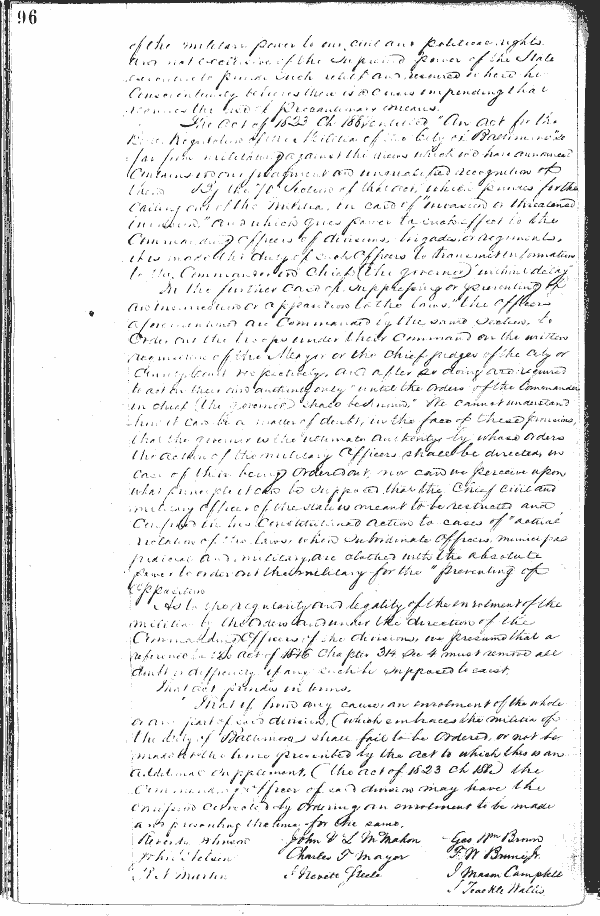 96
of the military power to our civil and political rights
and not exclusive of the supreme power of the State
executive to provide such relief and resource where he
conscientiously believes there is a crisis impending that
requires the use of precautionary measures.
The Act of 1823 Ch 188 entitled "An act for the
Regulation of the Militia of the City of Baltimore" so
far from militating against the views which we have announced
contains in our judgment an unqualified recognition of
them. By the 70 Section of that act, which provides for the
calling out of the militia, in case of "invasion or threatened
invasion," and which gives power to that effect to the
Commanding officers of divisions, brigades or regiments,
it is made the duty of such officers to transmit information
to the Commander in Chief (the governor) without delay"
In the further case of suppressing or preventing of
an insurrection or opposition to the laws" the officers
aforementioned are commanded by the same section, to
order out the troops under their command on the written
requisition of the Mayor or the Chief judges of the city or
County Court respectively, and after so doing are required
to act on their own authority only "until the orders of the Commander
in chief (the governor) shall be known." We cannot understand
how it can be a matter of doubt, in the face of these provisions,
that the governor is the ultimate authority by whose orders
the action of the military officers shall be directed, in
case of their being ordered out, nor can we perceive upon
what principle it can be supposed that the Chief civil and
military officer of the state is meant to be restricted and
confined in his Constitutional action to cases of "actual"
violation of the laws, when subordinate officers, municipal
judicial and military, are clothed with the absolute
power to order out the military for the "preventing of
opposition
As to the regularity and legality of the enrolment of the
militia by the orders and under the direction of the
Commanding officers of the divisions, we presume that a
reference to the act of 1846 Chapter 314 Sec 4 must remove all
doubt or difficulty if any such be supposed to exist.
That act provides in terms,
"That if from any cause, an enrolment of the whole
or any part of said division, (which embraces the militia of
the city of Baltimore) shall fail to be ordered, or not be
made at the time prescribed by the act to which this is an
additional supplement, (the act of 1823 Ch 188) the
Commanding officer of said division may have the
by ordering an enrolment to be made
and presenting the time for the same.
Reverdy Johnson John V L McMahon Geo Wm Brown
John Nelson Charles F Mayor F W Brune Jr.
R N Martin J Nevett Steele J Mason Campbell
S Teackle Wallis